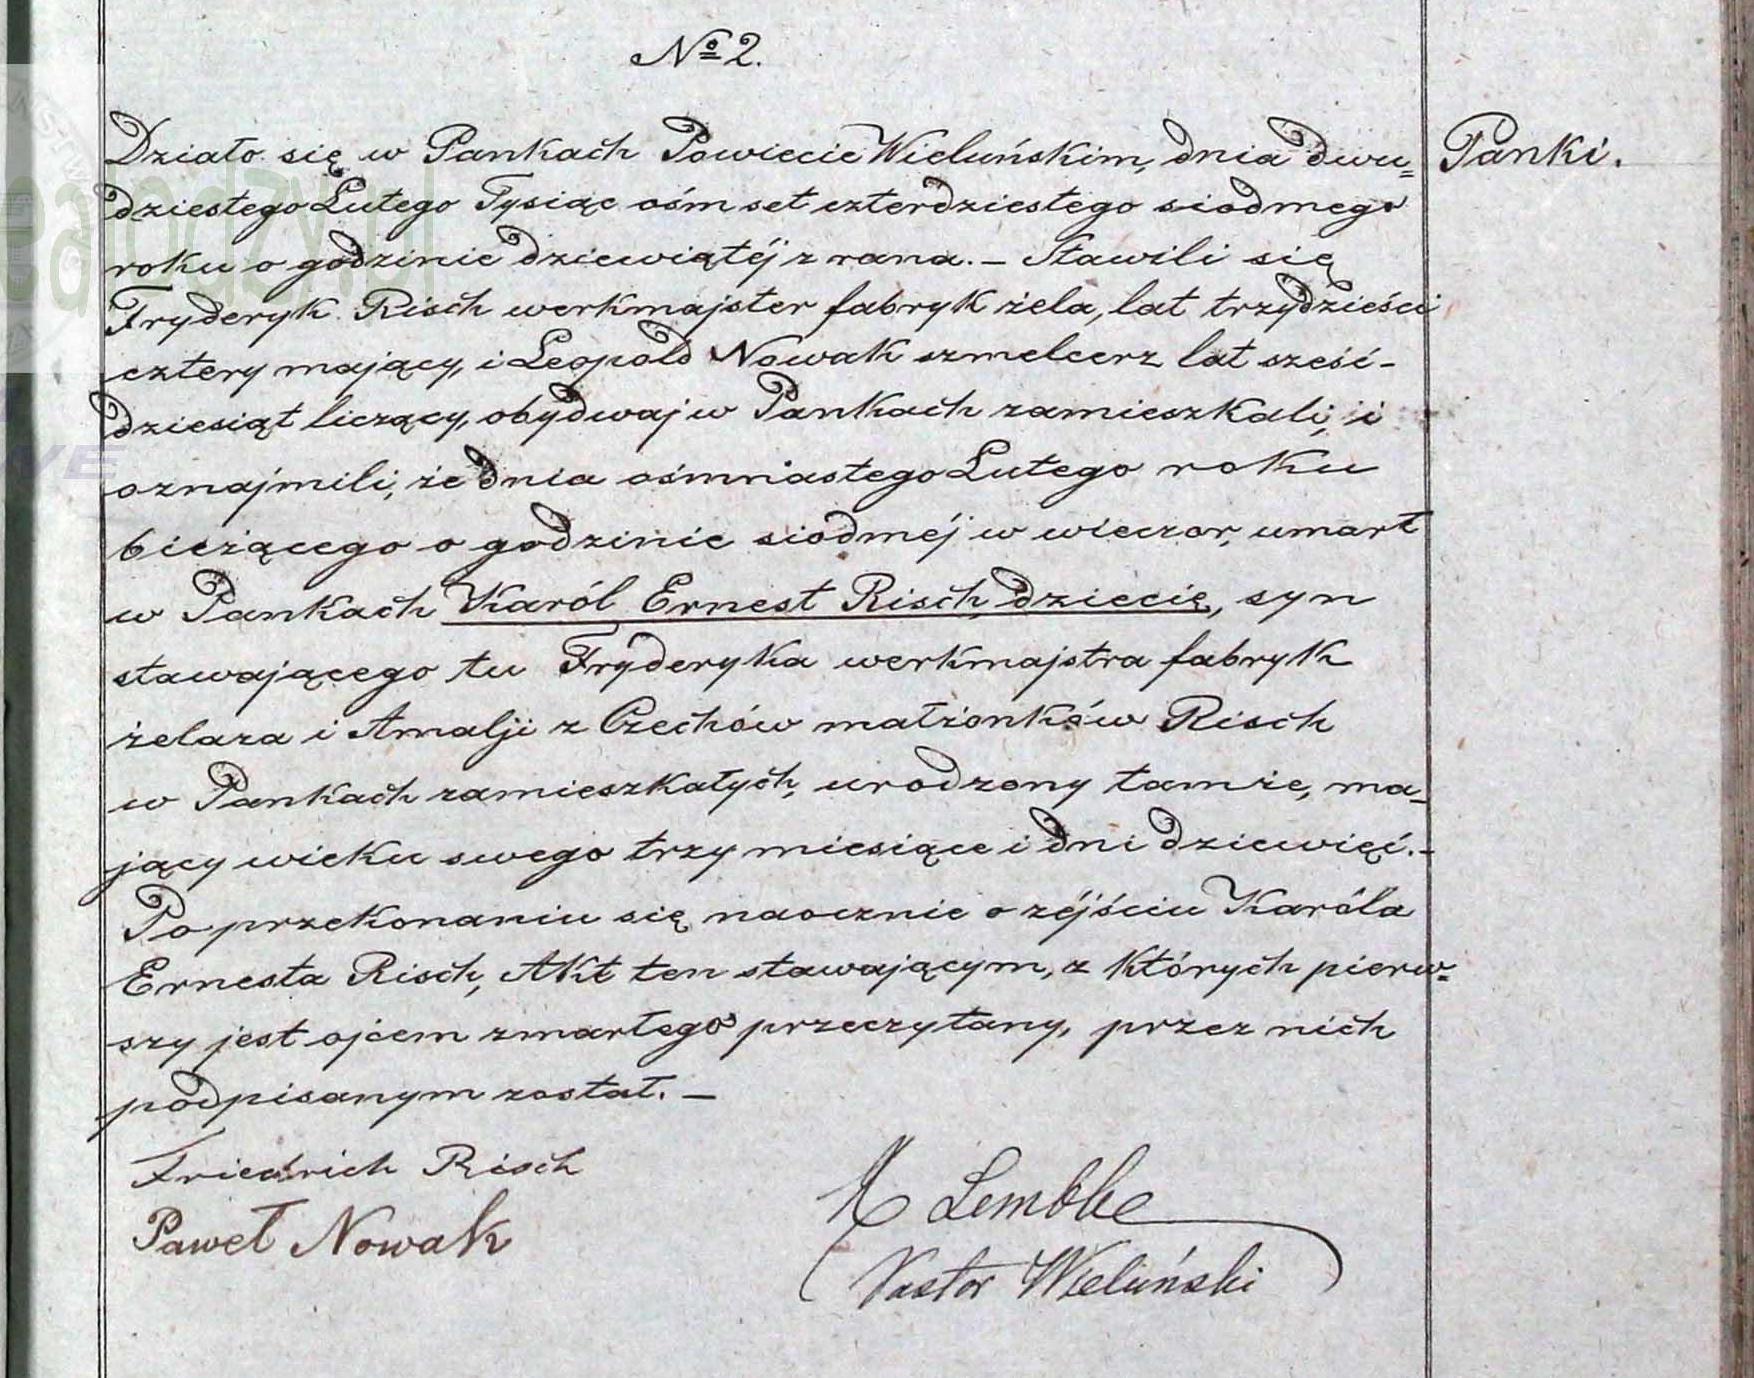 № 2.
Działo się w Pankach Powiecie Wieluńskim, dnia dwu=
Panki.
dziestego Lutego Tysiąc ośm set czterdziestego siodmego
roku o godzinie dziewiątéj z rana. – Stawili się
Fryderyk Risch werkmajster fabryk żela, lat trzydzieści
cztery mający, i Leopold Nowak szmelcerz lat sześć-
dziesiąt liczący, obydwaj w Pankach zamieszkali, i
oznajmili, że dnia ośmnastego Lutego roku
bieżącego o godzinie siodméj w wieczor, umarł
w Pankach Karól Ernest Risch, dziecię, syn
stawającego tu Fryderyka werkmajstra fabryk
żelaza i Amalji z Czechów małżonków Risch
w Pankach zamieszkałych, urodzony tamże, ma-
jący wieku swego trzy miesiące i dni dziewięć. –
Po przekonaniu się naocznie o zéjściu Karóla
Ernesta Risch, Akt ten stawającym, z których pierw=
szy jest ojcem zmarłego przeczytany, przez nich
podpisanym został. –
Friedrich Risch
Paweł Nowak
Lembke
Pastor Wieluński